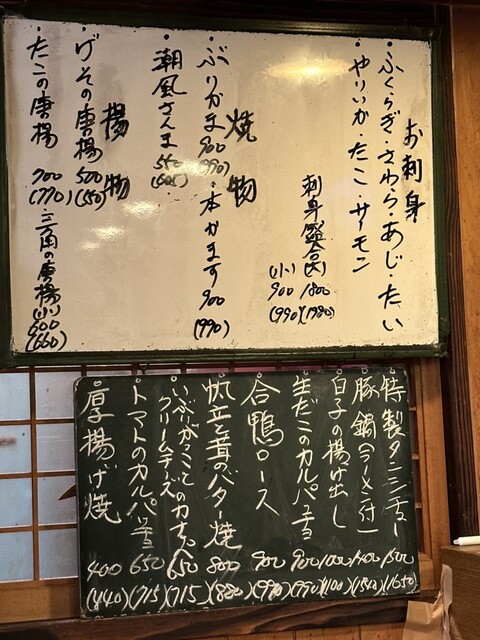 お刺身
・ふくらぎ・さわら・あじ・たい
・やりいか・たこ・サーモン
刺身盛合(大) 1800 (1980)
(小) 900 (990)
焼物
・ぶりかま 900 (990) ・本かます 900 (990)
・潮風さんま 550 (605)
揚物
・げその唐揚 500 (550)
・たこの唐揚 700 (770) 三角の唐揚 (小) 600 (660)
・特製タンシチュー 1500 (1650)
・豚鍋(ラーメン付) 1400 (1540)
・白子の揚げ出し 1000 (1100)
・生だこのカルパッチョ 900 (990)
・合鴨ロース 900 (990)
・帆立と茸のバター焼 800 (880)
・いぶりがっことのカナッペ 650 (715)
クリームチーズ
・トマトのカルパッチョ 650 (715)
・厚揚げ焼 400 (440)